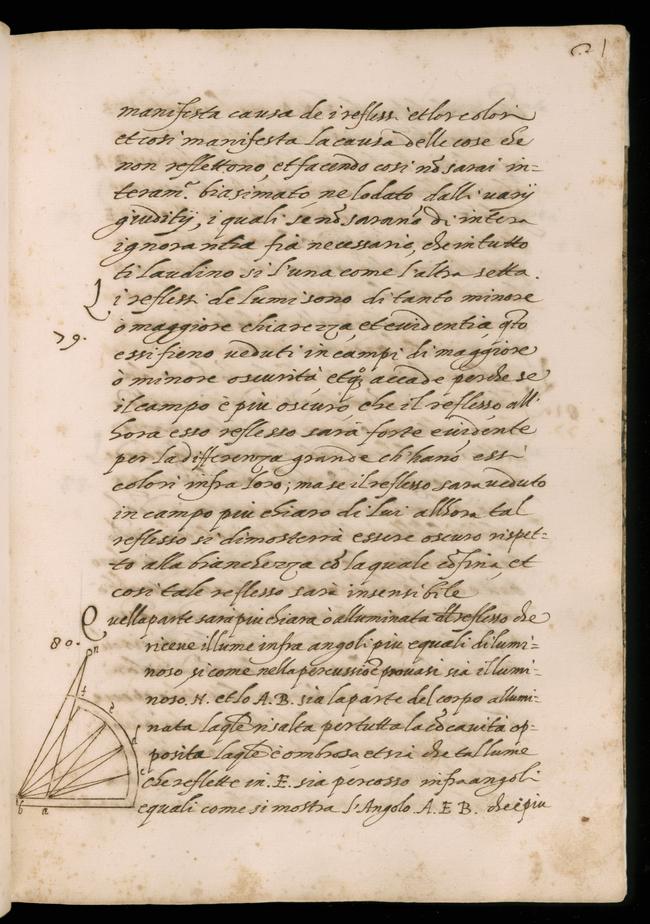 21
manifesta causa de i reflessi et lor colori
et cosi manifesta la causa delle cose che
non reflettono, et facendo cosi nõ sarai in=
teram.te biasimato, ne lodato dalli varij
giuditij, i quali se nõ sarano di intera
ignorantia fia necessario, che in tutto
ti laudino si l'una come l'altra setta.
Li reflessi de lumi sono di tanto minore
79.
ò maggiore chiarezza, et evidentia, q̃to
essi fieno veduti in campi di maggiore
ò minore oscurità, et q̃o accade perche se
il campo è piu oscuro, che il reflesso all'
hora esso reflesso sarà forte evidente
per la differenza grande ch'hanõ essi
colori infra loro; ma se il reflesso sara veduto
in campo piu chiaro di lui allhora tal
reflesso si dimosterrà essere oscuro rispet=
to alla bianchezza cõ la quale cõfina, et
cosi tale reflesso sarà insensibile
Quella parte sara piu chiara ò alluminata dal reflesso che
80.
riceve il lume infra angoli piu equali di lumi=
noso, si come nella percussione provasi sia il lumi=
noso. N. et lo A.B. sia la parte del corpo allumi=
nata laq̃le risalta per tutta la cõcavità op=
posita laq̃le è ombrosa et sia che tal lume
che reflette in .E. sia percosso infra angoli
equali come si mostra l'Angolo A.E B. che è piu
n
f
d
c
b a